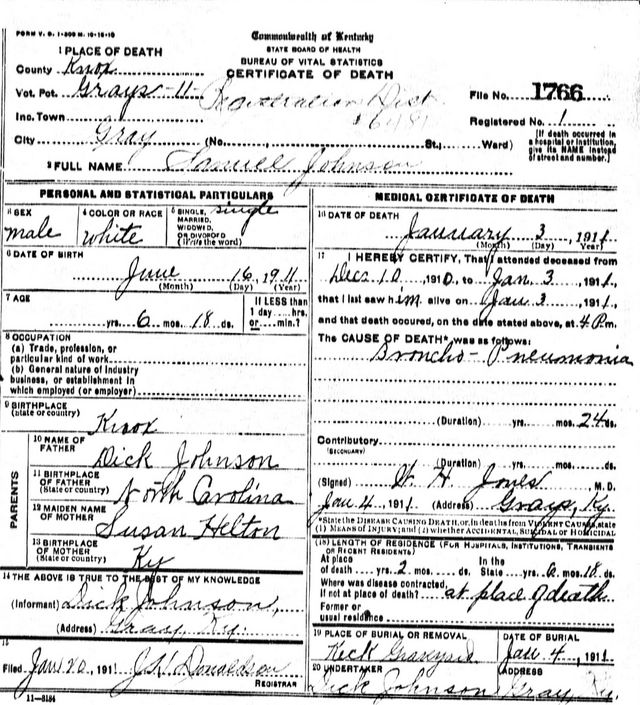 FORM V. S. 1-500 M. 10-15-10
Commonwealth of Kentucky
STATE BOARD OF HEALTH
BUREAU OF VITAL STATISTICS
CERTIFICATE OF DEATH
1 PLACE OF DEATH
County Knox
Vot. Pct. Grays - 11 - Registration Dist
File No. 1766
Inc. Town
Registered No. 1
City Gray (No. St., Ward)
[If death occurred in a hospital or institution, give its NAME instead of street and number.]
2 FULL NAME Samuel Johnson
PERSONAL AND STATISTICAL PARTICULARS
3 SEX male
4 COLOR OR RACE white
5 SINGLE, MARRIED, WIDOWED, OR DIVORCED (Write the word) single
6 DATE OF BIRTH
June 16, 1911
(Month) (Day) (Year)
7 AGE
yrs. 6 mos. 18 ds.
If LESS than 1 day ....hrs. or ....min.?
8 OCCUPATION
(a) Trade, profession, or
particular kind of work
(b) General nature of industry
business, or establishment in
which employed (or employer)
9 BIRTHPLACE
(State or country) Knox
PARENTS
10 NAME OF
FATHER Dick Johnson
11 BIRTHPLACE
OF FATHER
(State or country) North Carolina
12 MAIDEN NAME
OF MOTHER Susan Helton
13 BIRTHPLACE
OF MOTHER
(State or country) Ky
14 THE ABOVE IS TRUE TO THE BEST OF MY KNOWLEDGE
(Informant) Dick Johnson,
(Address) Gray Ky.
15
Filed Jan 20, 1911 J.W. Donaldson
REGISTRAR
11-8184
MEDICAL CERTIFICATE OF DEATH
16 DATE OF DEATH
January 3, 1911
(Month) (Day) (Year)
17 I HEREBY CERTIFY, That I attended deceased from
Dec 10, 1910, to Jan. 3, 1911,
that I last saw him alive on Jan 3, 1911,
and that death occured, on the date stated above, at 4 P.m.
The CAUSE OF DEATH* was as follows:
Broncho-Pneumonia
(Duration) yrs. mos. 24 ds.
Contributory
(SECONDARY)
(Duration) yrs. mos. ds.
(Signed) W. H. Jones, M. D.
Jan 4, 1911 (Address) Grays, Ky.
*State the DISEASE CAUSING DEATH, or, in deaths from VIOLENT CAUSES, state
(1) MEANS OF INJURY; and (2) whether ACCIDENTAL, SUICIDAL OR HOMICIDAL
(18) LENGTH OF RESIDENCE (FOR HOSPITALS, INSTITUTIONS, TRANSIENTS
OR RECENT RESIDENTS)
At place In the
of death yrs. 2 mos. ds. State yrs. 6 mos. 18 ds.
Where was disease contracted,
if not at place of death? at place of death
Former or
usual residence
19 PLACE OF BURIAL OR REMOVAL
Keck Graveyard
DATE OF BURIAL
Jan. 4, 1911
20 UNDERTAKER
Dick Johnson
ADDRESS
Gray, Ky.